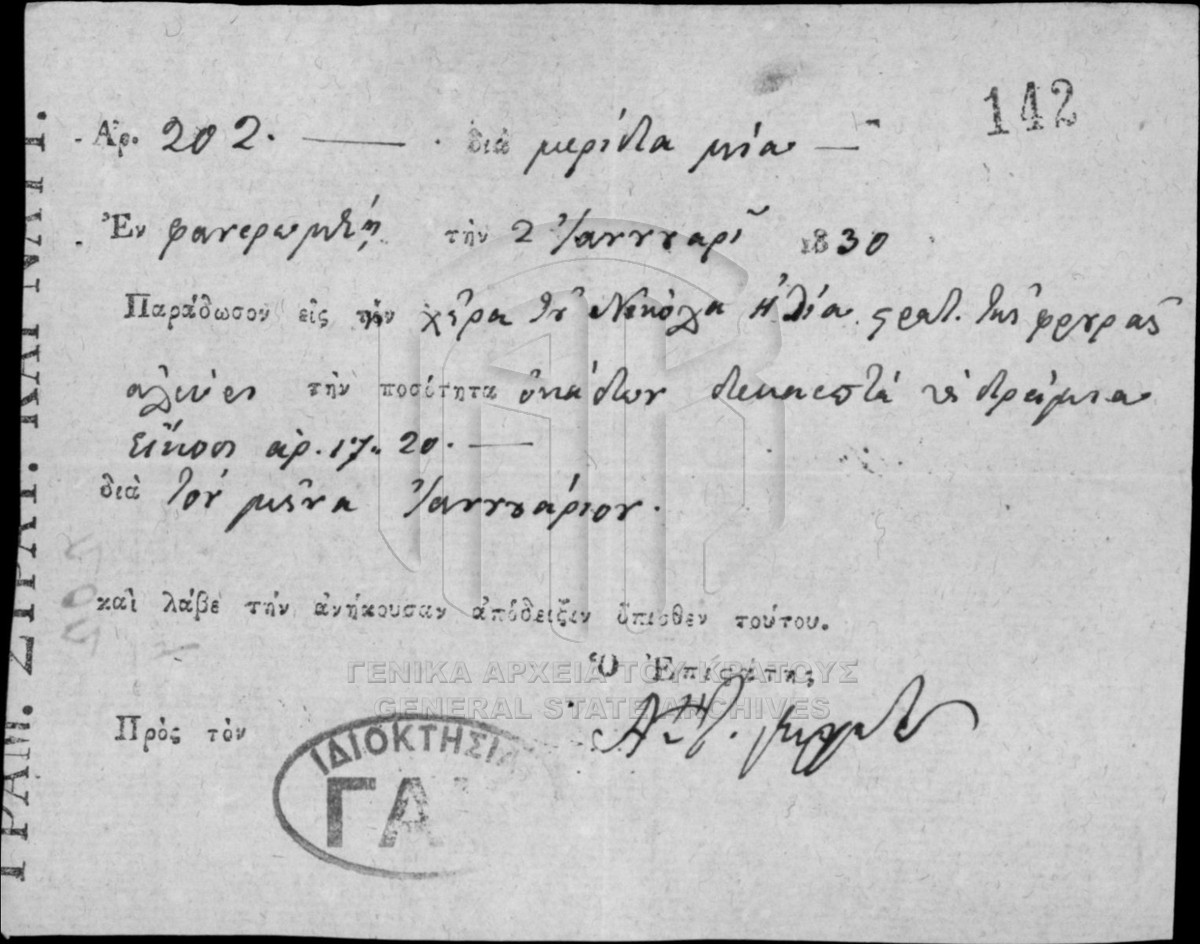 142
Ἀρ. 202. — διὰ μερίδα μία —
Ἐν φανερωμένῃ τὴν 2 Ἰαννουαρί 1830
Παράδωσον εἰς τὴν χεῖρα τοῦ Νικόλα Ἠλία στρατ. τῆς φρουρᾶς
τὴν ποσότητα ὀκάδων δεκαεπτά καὶ δράμια
εἴκοσι ἀρ. 17. 20. —
διὰ τόν μῆνα Ἰαννουάριον.
καὶ λάβε τὴν ἀνήκουσαν ἀπόδειξιν ὄπισθεν τούτου.
Ὁ Ἐπιστάτης
Πρὸς τὸν
ΓΡΑΜ. ΣΤΡΑΤ. ΚΑΙ ΝΑΥΤ.
ΓΕΝΙΚΑ ΑΡΧΕΙΑ ΤΟΥ ΚΡΑΤΟΥΣ
GENERAL STATE ARCHIVES
ΙΔΙΟΚΤΗΣΙΑ
ΓΑ